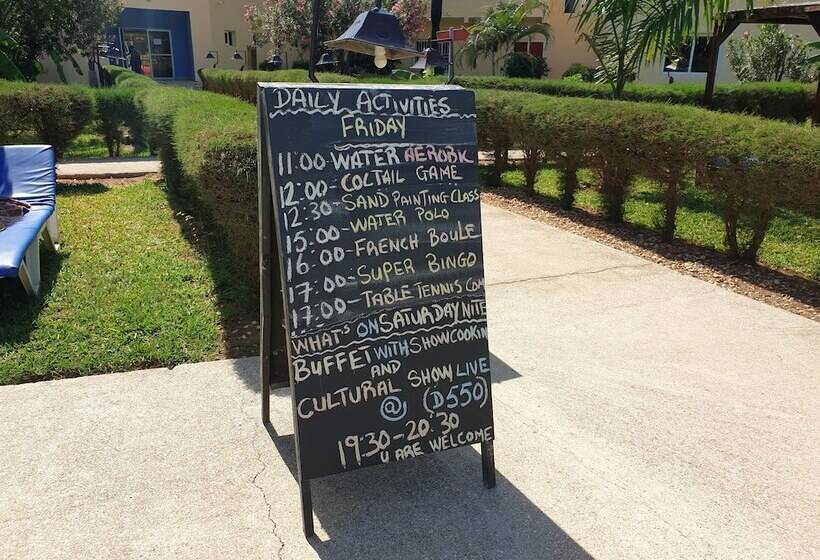 DAILY ACTIVITIES
FRIDAY
11:00-WATER AEROBIC
12:00-COLTAIL GAME
12:30-SAND PAINTING CLASS
15:00-WATER POLO
16:00-FRENCH BOULE
17:00-SUPER BINGO
17:00-TABLE TENNIS COM
WHAT'S ON SATURDAY NITE
BUFFET WITH SHOWCOOKIN
AND
CULTURAL SHOW LIVE
@ (D550)
19:30-20:30
U ARE WELCOME